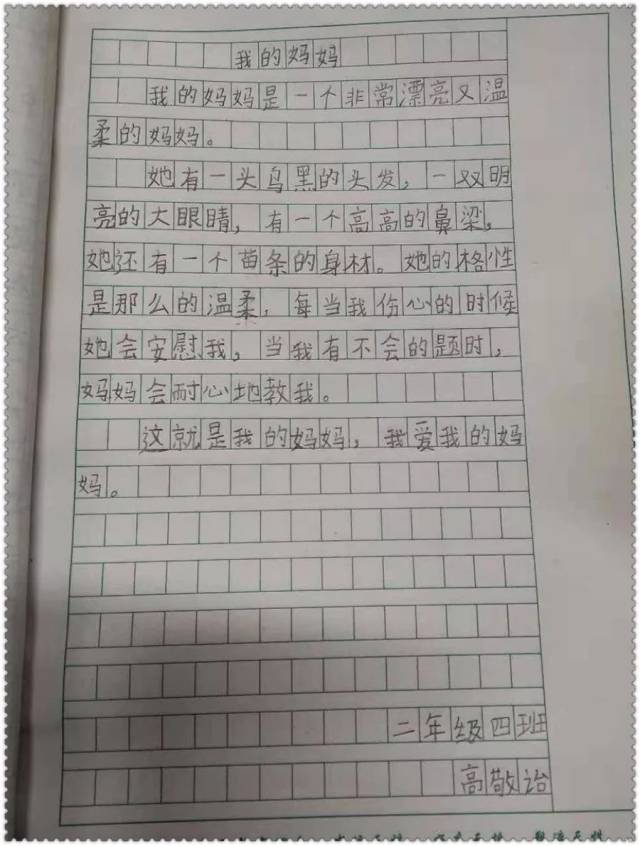 我的妈妈
我的妈妈是一个非常漂亮又温
柔的妈妈。
她有一头乌黑的头发，一双明
亮的大眼睛，有一个高高的鼻梁，
她还有一个苗条的身材。她的格性
是那么的温柔，每当我伤心的时候
她会安慰我，当我有不会的题时，
妈妈会耐心地教我。
这就是我的妈妈，我爱我的妈
妈。
二年级四班
高敬诒